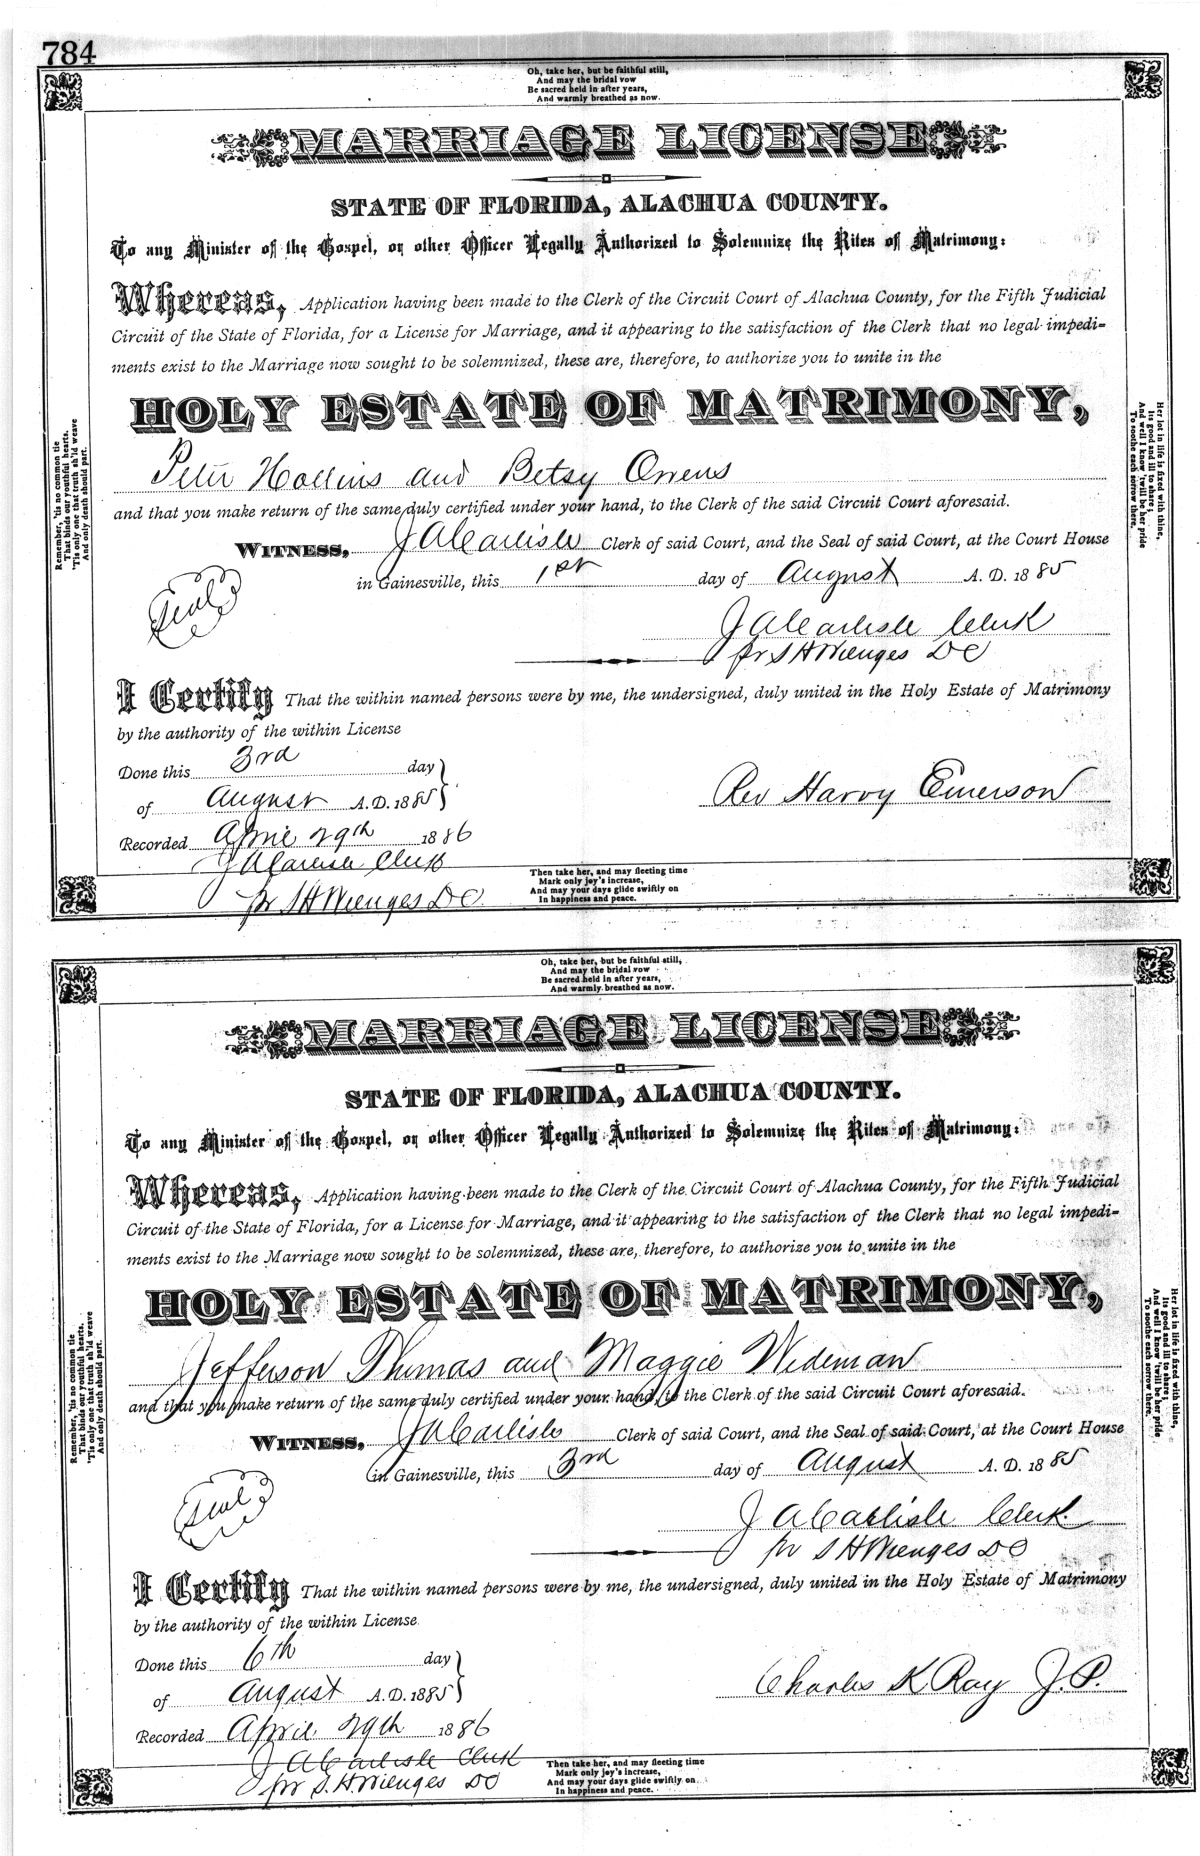 784
Oh, take her, but be faithful still,
And may the bridal vow
Be sacred held in after years,
And warmly breathed as now.
MARRIAGE LICENSE
STATE OF FLORIDA, ALACHUA COUNTY.
To any Minister of the Gospel, or other Officer Legally Authorized to Solemnize the Rites of Matrimony:
Whereas, Application having been made to the Clerk of the Circuit Court of Alachua County, for the Fifth Judicial
Circuit of the State of Florida, for a License for Marriage, and it appearing to the satisfaction of the Clerk that no legal impedi-
ments exist to the Marriage now sought to be solemnized, these are, therefore, to authorize you to unite in the
HOLY ESTATE OF MATRIMONY,
Peter Hollins and Betsy Owens
and that you make return of the same duly certified under your hand, to the Clerk of the said Circuit Court aforesaid.
WITNESS, J A Carlisle Clerk of said Court, and the Seal of said Court, at the Court House
in Gainesville, this 1st day of August A. D. 1885
Seal
J A Carlisle Clerk
pr S H Wienges DC
I Certify That the within named persons were by me, the undersigned, duly united in the Holy Estate of Matrimony
by the authority of the within License
Done this 3rd day
of August A. D. 1885
Rev Harvy Emerson
Recorded April 29th 1886
J A Carlisle Clerk
pr S H Wienges DC
Then take her, and may fleeting time
Mark only joy's increase,
And may your days glide swiftly on
In happiness and peace.
Remember, 'tis no common tie
That binds our youthful hearts.
'Tis only one that truth sh'ld weave
And only death should part.
Her lot in life is fixed with thine,
Its good and ill to share;
And well I know 'twill be her pride
To soothe each sorrow there.
Oh, take her, but be faithful still,
And may the bridal vow
Be sacred held in after years,
And warmly breathed as now.
MARRIAGE LICENSE
STATE OF FLORIDA, ALACHUA COUNTY.
To any Minister of the Gospel, or other Officer Legally Authorized to Solemnize the Rites of Matrimony:
Whereas, Application having been made to the Clerk of the Circuit Court of Alachua County, for the Fifth Judicial
Circuit of the State of Florida, for a License for Marriage, and it appearing to the satisfaction of the Clerk that no legal impedi-
ments exist to the Marriage now sought to be solemnized, these are, therefore, to authorize you to unite in the
HOLY ESTATE OF MATRIMONY,
Jefferson Thomas and Maggie Wideman
and that you make return of the same duly certified under your hand, to the Clerk of the said Circuit Court aforesaid.
WITNESS, J A Carlisle Clerk of said Court, and the Seal of said Court, at the Court House
in Gainesville, this 3rd day of August A. D. 1885
Seal
J A Carlisle Clerk.
pr S H Wienges DC
I Certify That the within named persons were by me, the undersigned, duly united in the Holy Estate of Matrimony
by the authority of the within License
Done this 6th day
of August A. D. 1885
Charles K Ray J. P.
Recorded April 29th 1886
J A Carlisle Clerk
pr S. H. Wienges DC
Then take her, and may fleeting time
Mark only joy's increase,
And may your days glide swiftly on
In happiness and peace.
Remember, 'tis no common tie
That binds our youthful hearts.
'Tis only one that truth sh'ld weave
And only death should part.
Her lot in life is fixed with thine,
Its good and ill to share;
And well I know 'twill be her pride
To soothe each sorrow there.